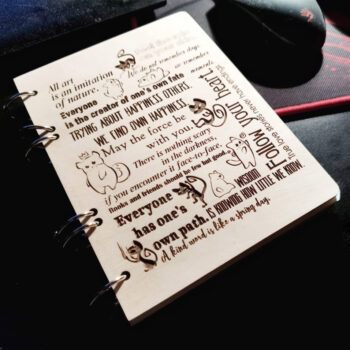 All art
is an imitation
of nature.
We do not remember days,
we remember
moments
Everyone
is the creator of one's own fate
TRYING ABOUT HAPPINESS OTHERS,
WE FIND OWN HAPPINESS
May the force be
with you.
There is nothing scary
in the darkness,
if you encounter it face-to-face.
Books and friends should be few but good
Follow your heart.
True love stories never have endings
Everyone
has one's
own path.
WISDOM
IS KNOWING HOW LITTLE WE KNOW.
A kind word is like a spring day.